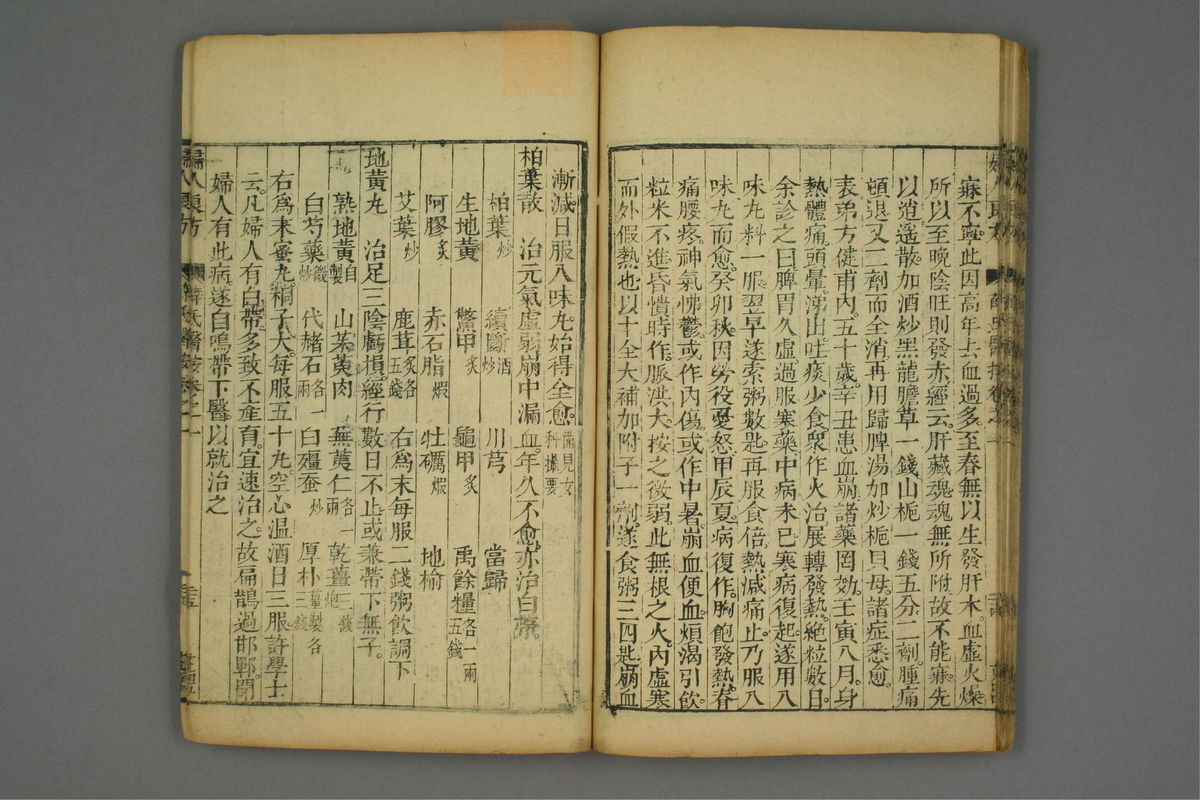 寐不寧此因高年去血過多至春無以生發肝木血虛火燥
所以至晚陰旺則發赤經云肝藏魂魂無所附故不能寐先
以逍遥散加酒炒黑龍膽草一錢山梔一錢五分二劑腫痛
頓退又二劑而全消再用歸脾湯加炒梔貝母諸症悉愈
表弟方健甫內五十歲辛丑患血崩諸藥罔効壬寅八月身
熱體痛頭暈涕出吐痰少食衆作火治展轉發熱絶粒數日
余診之曰脾胃久虛過服寒藥中病未已寒病復起遂用八
味丸料一服翌早遂索粥數匙再服食倍熱減痛止乃服八
味丸而愈癸卯秋因勞役憂怒甲辰夏病復作胸飽發熱脊
痛腰疼神氣怫鬱或作內傷或作中暑崩血便血煩渴引飲
粒米不進昏憒時作脈洪大按之微弱此無根之火內虛寒
而外假熱也以十全大補加附子一劑遂食粥三四匙崩血
漸減日服八味丸始得全愈
柏葉散 治元氣虛弱崩中漏血年久不愈亦治白帶
柏葉炒 續斷酒炒 川芎 當歸
生地黃 鱉甲炙 龜甲炙 禹餘糧各一兩五錢
阿膠炙 赤石脂煆 牡礪煆 地榆
艾葉炒 鹿茸炙各五錢 右為末每服二錢粥飲調下
地黃丸 治足三陰虧損經行數日不止或兼帶下無子
熟地黃自製 山茱萸肉 蕪荑仁各一兩 乾薑炮三錢
白芍藥微炒 代赭石各一兩 白殭蚕炒 厚朴薑製各三錢
右為末蜜丸桐子大每服五十丸空心温酒日三服許學士
云凡婦人有白帶多致不產育宜速治之故扁鵲過邯鄲聞
婦人有此病遂自鳴帶下醫以就治之
婦人良方
薛氏醫按卷之一